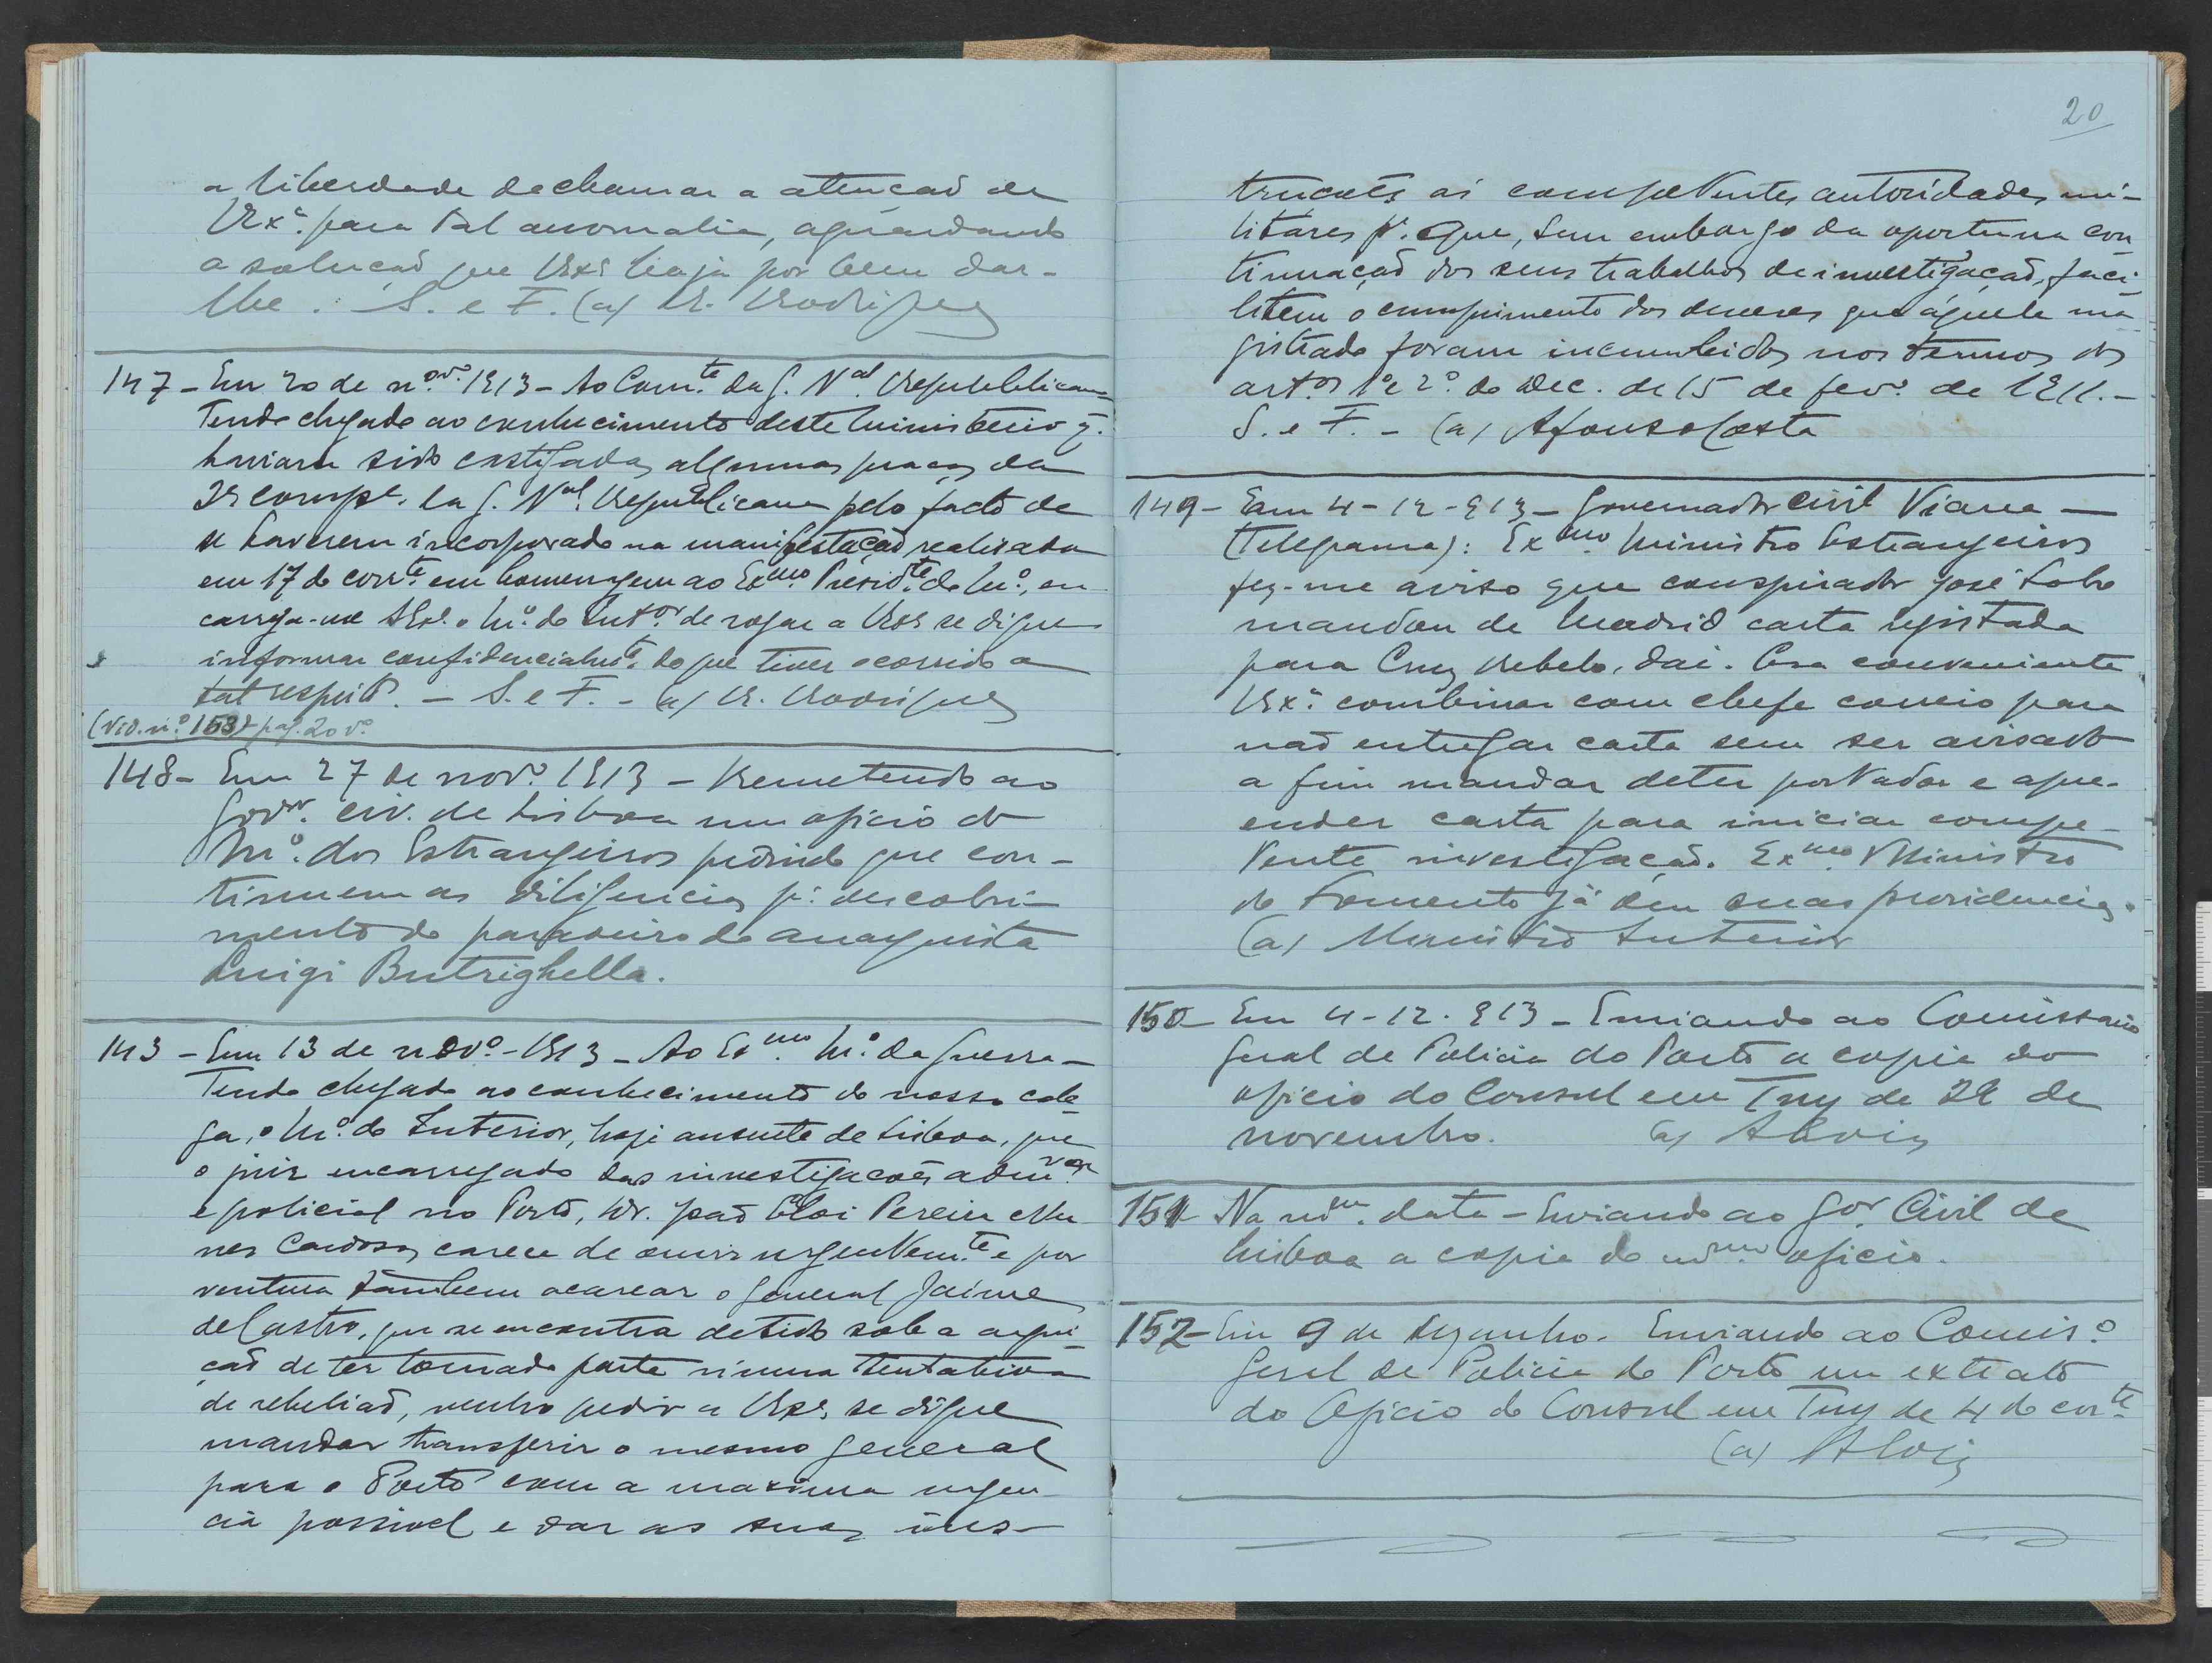 a liberdade de chamar a atenção de
V.Exª. para tal anomalia, aguardando
a solução que V.Exª haja por bem dar-
lhe. S. e F. (a) R. Rodrigues
147 - Em 20 de nov.º 1913 - Ao Com.te da G. N.al Republicana
Tendo chegado ao conhecimento deste Ministerio q.
haviam sido castigadas algumas praças da
compª. da G. N.al Republicana pelo facto de
se haverem incorporado na manifestação realisada
em 17 do corr.te em homenagem ao Ex.mo Presid.te do M.º, en
carrega-me S.Exª. o M.º do Int.or de rogar a V.Exª se digne
informar confidencialm.te do que tiver ocorrido a
tal respeito. - S. e F. - (a) R. Rodrigues
(Vid. n.º 153) pag. 20 v.º
148 - Em 27 de nov.º 1913 - Remetendo ao
Gov.or civ. de Lisboa um oficio do
M.º dos Estrangeiros pedindo que con-
tinuem as diligencias p.ª descobri-
mento do paradeiro do anarquista
Luigi Butrighella.
143 - Em 13 de nov.º - 1913 - Ao Ex.mo M.º da Guerra -
Tendo chegado ao conhecimento do nosso cole-
ga, o M.º do Interior, hoje ausente de Lisboa, que
o juiz encarregado das investigações adm.vas
e policial no Porto, Dr. João Eloi Pereira Nu-
nes Cardoso, carece de ouvir urgentem.te e por
ventura tambem acarear o general Jaime
de Castro, que se encontra detido sob a argui-
ção de ter tomado parte n'uma tentativa
de rebelião, venho pedir a V.Exª. se digne
mandar transferir o mesmo general
para o Porto com a maxima urgen-
cia possivel e dar as suas ins-
20
truções ás competentes autoridades mi-
litares p.ª que, sem embargo da oportuna con
tinuação dos seus trabalhos de investigação, faci-
litem o cumprimento dos deveres que áquele ma-
gistrado foram incumbidos nos termos dos
art.os 1º e 2º. do Dec. de 15 de fev.º de 1911. -
S. e F. - (a) Afonso Costa
149 - Em 4-12-913 - Governador civil Viana -
(Telegrama): Ex.mo Ministro Estrangeiros
fez-me aviso que conspirador José
mandou de Madrid carta registada
para Cruz Rebelo, dai. Era conveniente
V.Exª. combinar com chefe correio para
não entregar carta sem ser avisado
a fim mandar deter portador e apre-
ender carta para iniciar compe-
tente investigação. Ex.mo Ministro
do Fomento já deu suas providencias.
(a) Ministro Interior
150 - Em 4-12-913 - Enviando ao Comissario
Geral de Policia do Porto a copia do
oficio do Consul em Tuy de 29 de
novembro. (a)
151 - Na m.ma data - Enviando ao Gov.or Civil de
Lisboa a copia do m.mo oficio.
152 - Em 9 de Dezembro. Enviando ao Comis.º
Geral de Policia do Porto um extrato
do Oficio do Consul em Tuy de 4 do corr.te
(a)